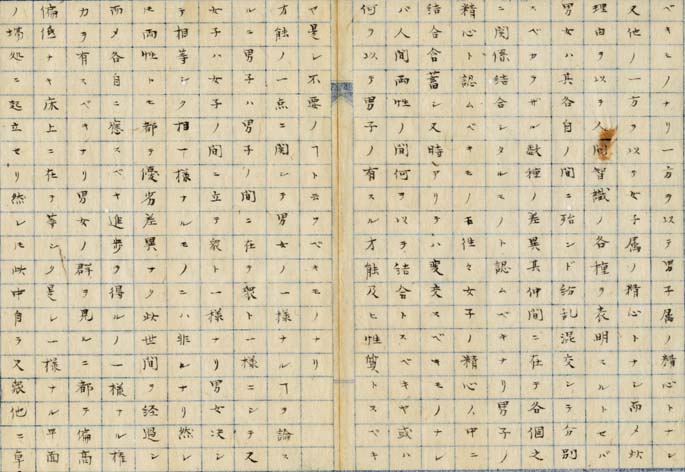 ベキモノナリ一方ヲ以テ男子属ノ精心トナシ
又他ノ一方ヲ以テ女子属ノ精心トナシ而メ此
理由ヲ以テ人間智識ノ各種ヲ表明スルトセバ
男女其各自ノ間ニ殆ンド紛乱混交シテ分別
スベカラザル数種ノ差異其仲間ニ在テ各個之
ニ関係結合シタルモノト認ムベキナリ男子ノ
精心ト認ムベキモノモ往々女子ノ精心ノ中ニ
結合含蓄シ又時アリテハ変交スベキモノナレ
バ人間両性ノ間何ヲ以テ結合トスベキヤ或ハ
何ヲ以テ男子ノ有スル才能及ヒ性質トスベキ
ヤ是レ不要ノヿト云フベキモノナリ
才能ノ一点ニ関シテ男女ノ一様ナルヿヲ論ス
ルニ男子ハ男子ノ間ニ在テ衆ト一様ニシテ
女子ハ女子ノ間ニ立テ衆ト一様ナリ男女決シ
テ相等シク相一様ナルモノニハ非ルナリ然レ
ル両性トモ都テ優劣差異アリ此世間ヲ経過シ
而メ各自ニ応スベキ進歩ヲ得ルノ一様ナル権
カヲ有スベキナリ男女ノ群ヲ見ルニ都テ偏高
偏低ナキ床上ニ在テ等シク是レ一様ナル平面
ノ場処ニ起立セリ然レ𪜈此中自ラ又衆他ニ卓